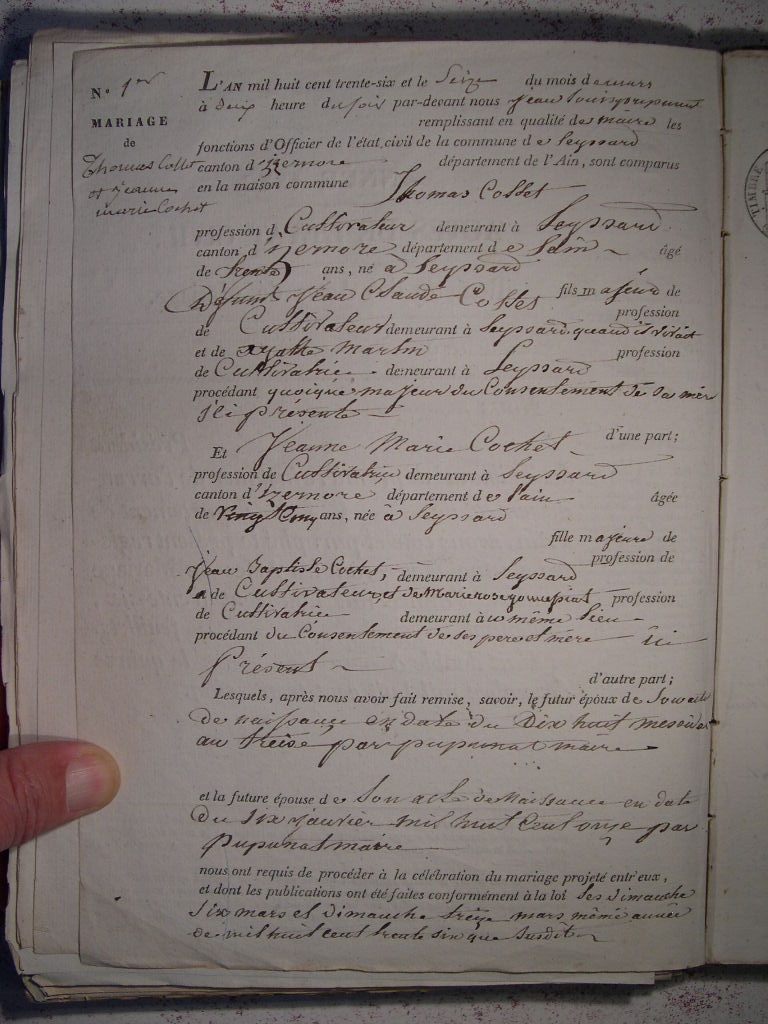 N.° 1er
MARIAGE
de
Thomas Collet
et Jeanne
marie Cochet
L'AN mil huit cent trente-six et le Seize du mois de mars
à Deux heure du soir par-devant nous jean
remplissant en qualité de maire les
fonctions d'Officier de l'état civil de la commune de Seyssard
canton d'izernore département de l'Ain, sont comparus
en la maison commune Thomas Collet
profession d Cultivateur demeurant à Seyssard
canton d'izernore département de Lain âgé
de trente ans, né à Seyssard
Défunt Jean Claude Collet fils majeur de
profession
de Cultivateur demeurant à Seyssard quand il vivait
et de agathe Martin profession
de Cultivatrice demeurant à Seyssard
procédant quoique majeur du Consentement de sa mère
ici présente
d'une part;
Et Jeanne Marie Cochet
profession de Cultivatrice demeurant à Seyssard
canton d'izernore département de lain âgée
de Vingt Cinq ans, née à Seyssard
fille majeure de
profession de
Jean Baptiste Cochet, demeurant à Seyssard
de Cultivateur et de Marie rose profession
de Cultivatrice demeurant à u même lieu
procédant du Consentement de ses pere et mère ici
Présent
d'autre part;
Lesquels, après nous avoir fait remise, savoir, le futur époux de Son acte
de naissance en date du Dix huit messidor
au treize par pupunat maire
et la future épouse de Son acte de Naissance en date
du six janvier mil huit Cent onze par
pupunat maire
nous ont requis de procéder à la célébration du mariage projeté entr'eux,
et dont les publications ont été faites conformément à la loi les dimanche
Six mars et dimanche treize mars même année
de mil huit cent trente six que Susdit
TIMBRE